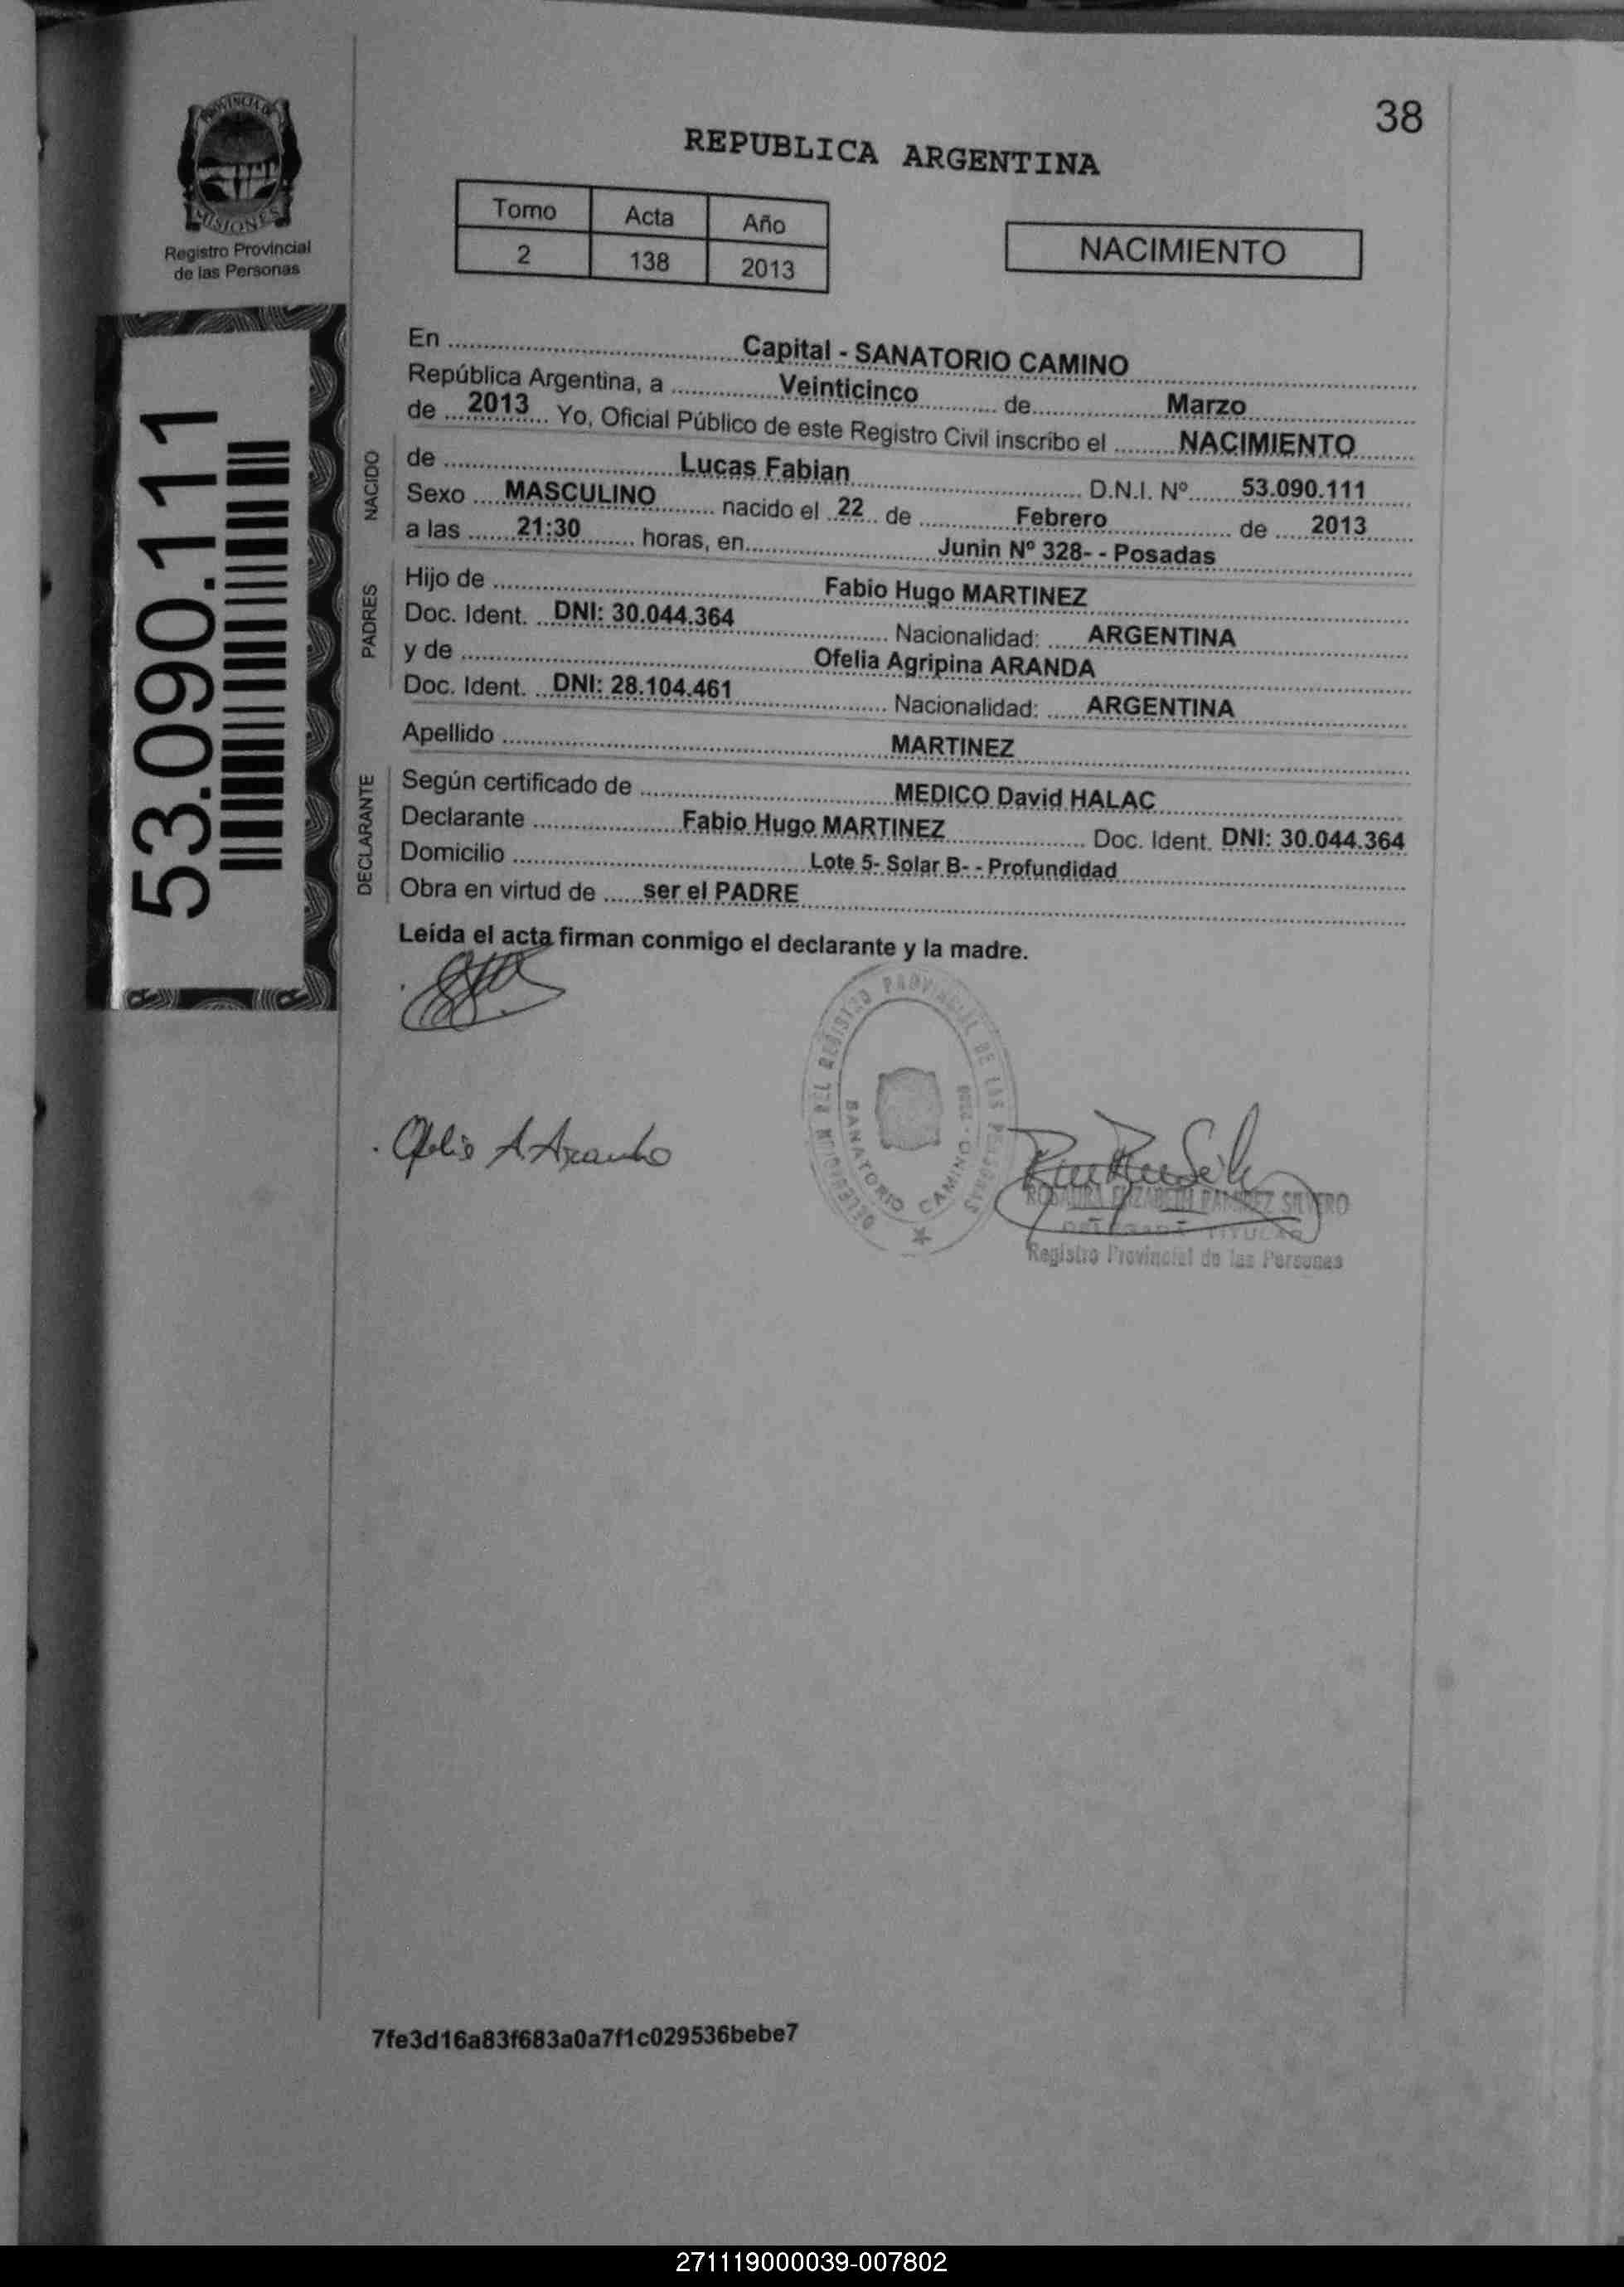 38
PROVINCIA DE
MISIONES
Registro Provincial
de las Personas
REPUBLICA ARGENTINA
Tomo Acta Año
2 138 2013
NACIMIENTO
53.090.111
En Capital - SANATORIO CAMINO
República Argentina, a Veinticinco de Marzo
de 2013 Yo, Oficial Público de este Registro Civil inscribo el NACIMIENTO
NACIDO
de Lucas Fabian D.N.I. Nº 53.090.111
Sexo MASCULINO nacido el 22 de Febrero de 2013
a las 21:30 horas, en Junin Nº 328- - Posadas
PADRES
Hijo de Fabio Hugo MARTINEZ
Doc. Ident. DNI: 30.044.364 Nacionalidad: ARGENTINA
y de Ofelia Agripina ARANDA
Doc. Ident. DNI: 28.104.461 Nacionalidad: ARGENTINA
Apellido MARTINEZ
DECLARANTE
Según certificado de MEDICO David HALAC
Declarante Fabio Hugo MARTINEZ Doc. Ident. DNI: 30.044.364
Domicilio Lote 5- Solar B- - Profundidad
Obra en virtud de ser el PADRE
Leída el acta firman conmigo el declarante y la madre.
DEL REGISTRO PROVINCIAL DE LAS PERSONAS
SANATORIO CAMINO
Ofelia A Aranda
ROSAURA ELIZABETH RAMIREZ SILVERO
DELEGADA TITULAR
Registro Provincial de las Personas
7fe3d16a83f683a0a7f1c029536bebe7
271119000039-007802